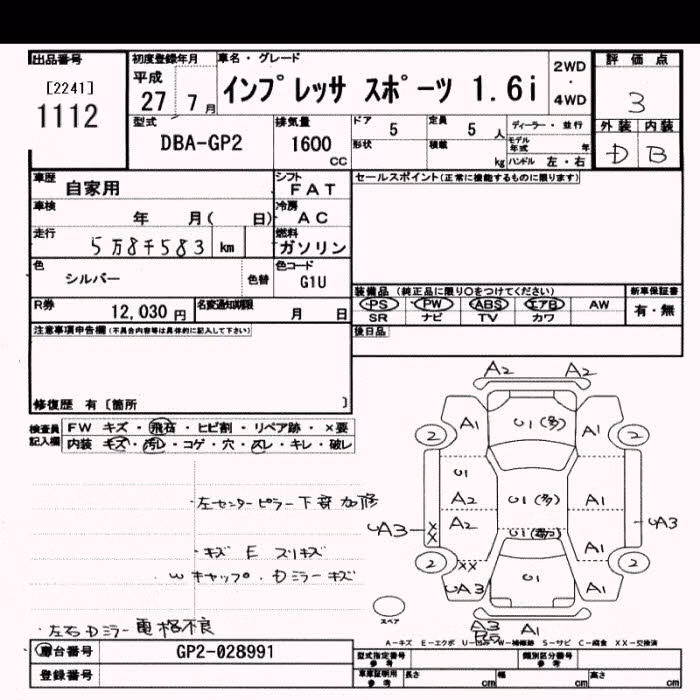 出品番号 初度登録年月 車名・グレード 2WD 評価点
[2241] 平成 インプレッサ スポーツ 1.6i ・ 3
1112 27 7月 4WD 外装 内装
型式 排気量 ドア 5 定員 5人 ディーラー・並行 D B
DBA-GP2 1600 形状 積載 モデル年式 年
CC kg ハンドル 左・右
車歴 自家用 シフト FAT セールスポイント(正常に機能するものに限ります)
車検 年 月( 日) 冷房 AC
走行 5万8千583 km 燃料 ガソリン
色 シルバー 色替 色コード G1U
装備品 (純正品に限り○をつけてください) 新車保証書
R券 12,030円 名変通知期限 月 日 PS PW ABS エアB AW 有・無
SR ナビ TV カワ
注意事項申告欄(不具合内容等は具体的に記入して下さい) 後日品
修復歴 有 [箇所 ]
検査員記入欄 FW キズ・飛石・ヒビ割・リペア跡・×要
内装 キズ・汚レ・コゲ・穴・スレ・キレ・破レ
A2 A2
2 A1 U1(多) A1 2
U1
A2 U1(多) A1
UA3 XX A2 UA3
A1
2 XX U1 2
UA3 A1
スペア
A3 A1
・左センターピラー下部加修
・キズ E スリキズ
・W キャップ・Dミラーキズ
・左右Dミラー電格不良
A-キズ E-エクボ U-凹み W-補修跡 S-サビ C-腐食 XX-交換済
車台番号 GP2-028991 型式指定番号 参考 類別区分番号 参考
登録番号 車庫証明用 参考 長さ cm 幅 cm 高さ cm